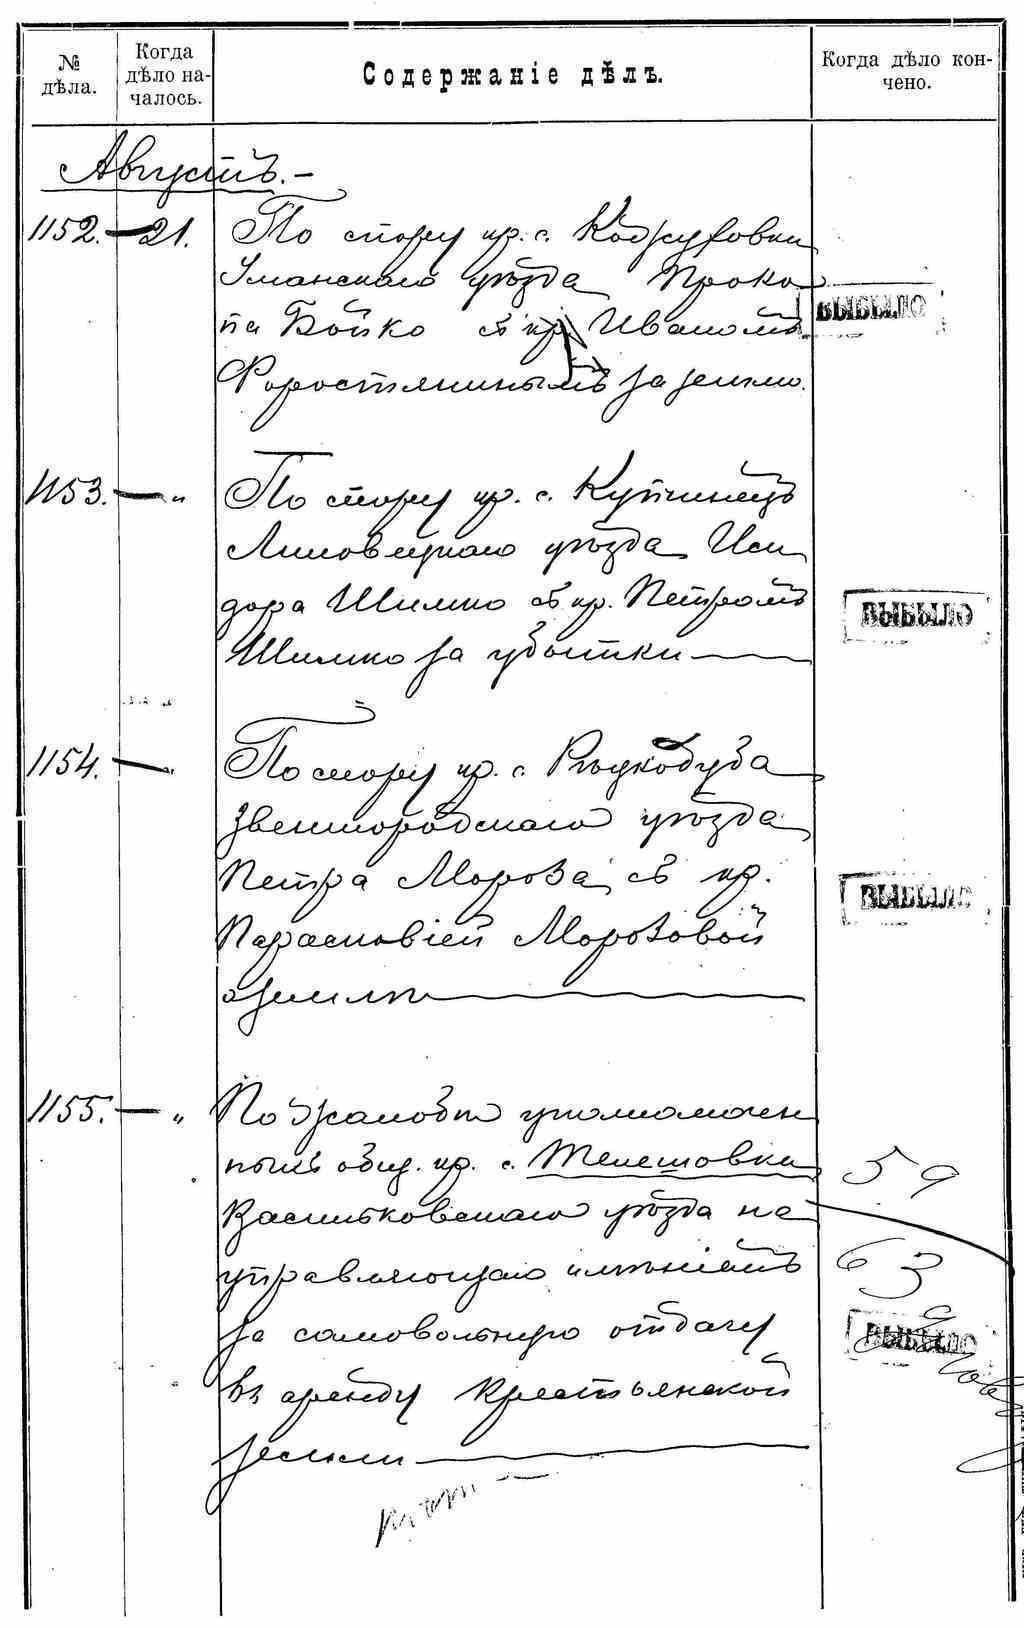 № дѣла.
Когда дѣло на-
чалось.
Содержаніе дѣлъ.
Когда дѣло кон-
чено.
Августъ. –
1152. — 21. По спору кр. с. Коджуховки
Уманскаго уѣзда Проко
па Бойко съ кр. Иваномъ
Форостянымъ за землю.
ВЫБЫЛО
1153. — „ По спору кр. с. Купчинецъ
Липовецкаго уѣзда Иси
дора Шимко съ кр. Петромъ
Шимко за убытки
ВЫБЫЛО
1154. — „ По спору кр. с. Рыжкодуба
Звенигородскаго уѣзда
Петра Мороза съ кр.
Парасковіей Морозовой
о землѣ
ВЫБЫЛО
1155. — „ По жалобѣ уполномочен
ныхъ общ. кр. с. Телешовки
Васильковскаго уѣзда на
управляющаго имѣніемъ
за самовольную отдачу
въ аренду крестьянской
земли
59
63
ВЫБЫЛО